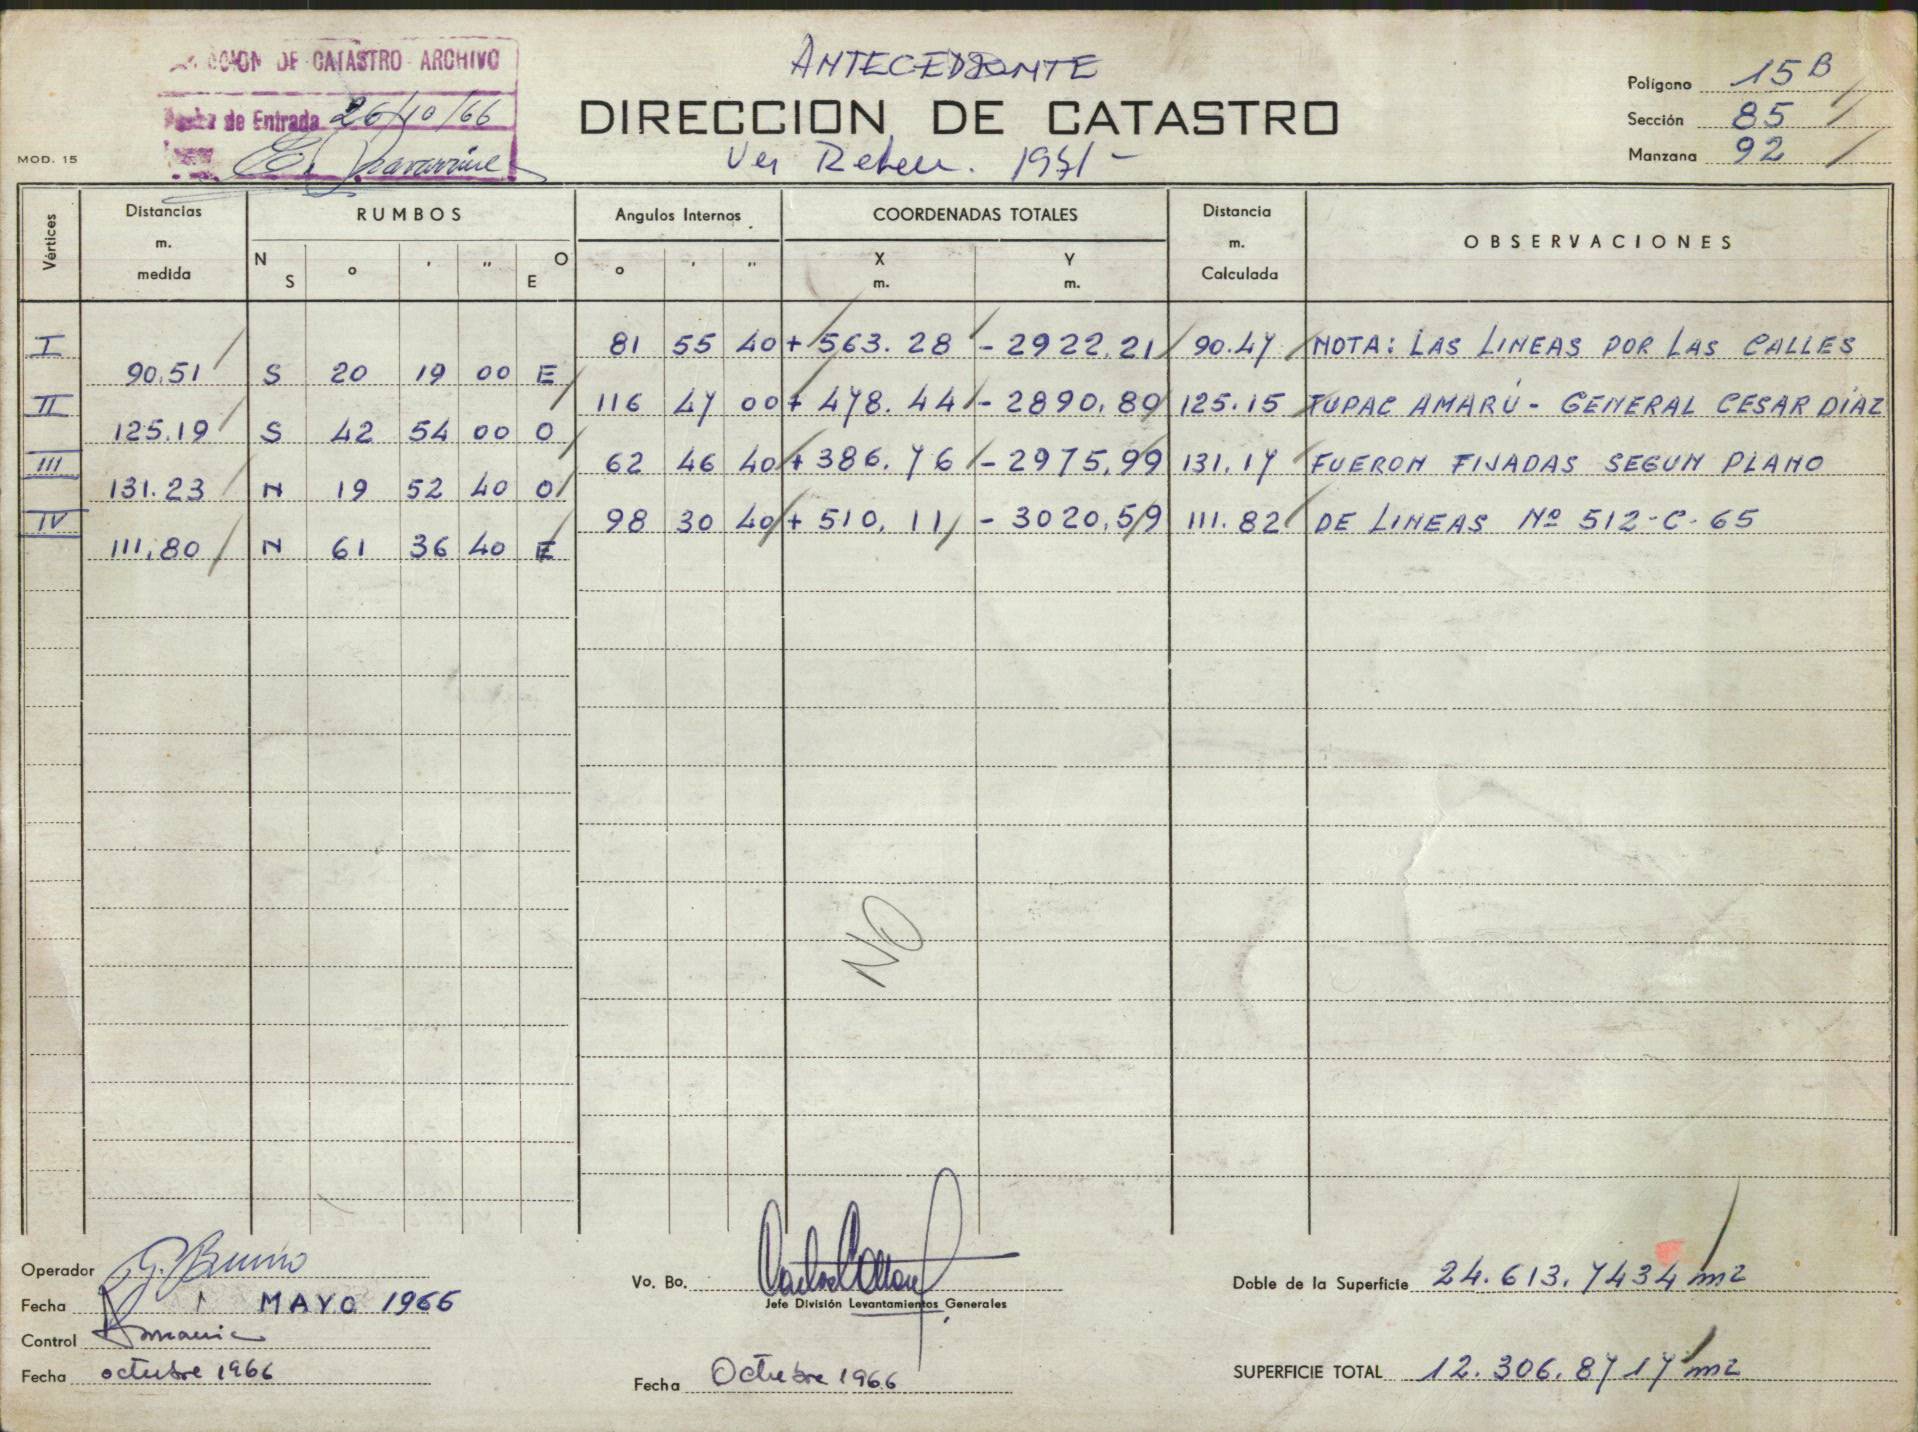 DE CATASTRO ARCHIVO
de Entrada 26/10/66
ANTECEDENTE
DIRECCION DE CATASTRO
Ver Relev. 1971 -
MOD. 15
Polígono 15 B
Sección 85
Manzana 92
Vértices Distancias m. medida RUMBOS Angulos Internos COORDENADAS TOTALES Distancia m. Calculada OBSERVACIONES
N S o ' " O E o ' " X m. Y m.
I 81 55 40 + 563.28 - 2922.21 90.47 NOTA: LAS LINEAS POR LAS CALLES
90.51 S 20 19 00 E
II 116 47 00 + 478.44 - 2890.80 125.15 TUPAC AMARÚ - GENERAL CESAR DÍAZ
125.19 S 42 54 00 O
III 62 46 40 + 386.76 - 2975,99 131.17 FUERON FIJADAS SEGUN PLANO
131.23 N 19 52 40 O
IV 98 30 40 + 510,11 - 3020,59 111.82 DE LINEAS Nº 512-C-65
111,80 N 61 36 40 E
NO
Operador G. Bruno
Fecha 1 MAYO 1966
Control
Fecha octubre 1966
Vo. Bo.
Jefe División Levantamientos Generales
Fecha Octubre 1966
Doble de la Superficie 24.613.7434 m2
SUPERFICIE TOTAL 12.306.8717 m2